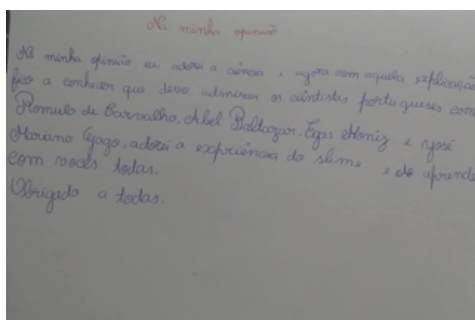 Na minha opinião
Na minha opinião eu adorei a ciência e agora com aquela explicação
fico a conhecer que devo admirar os ciêntistas portugueses com
Romulo de Carvalho, Abel Baltazar, Egas Moniz e José
Mariano Gago, adorei a expriência do slime e de aprende
com vocês todas.
Obrigado a todas.